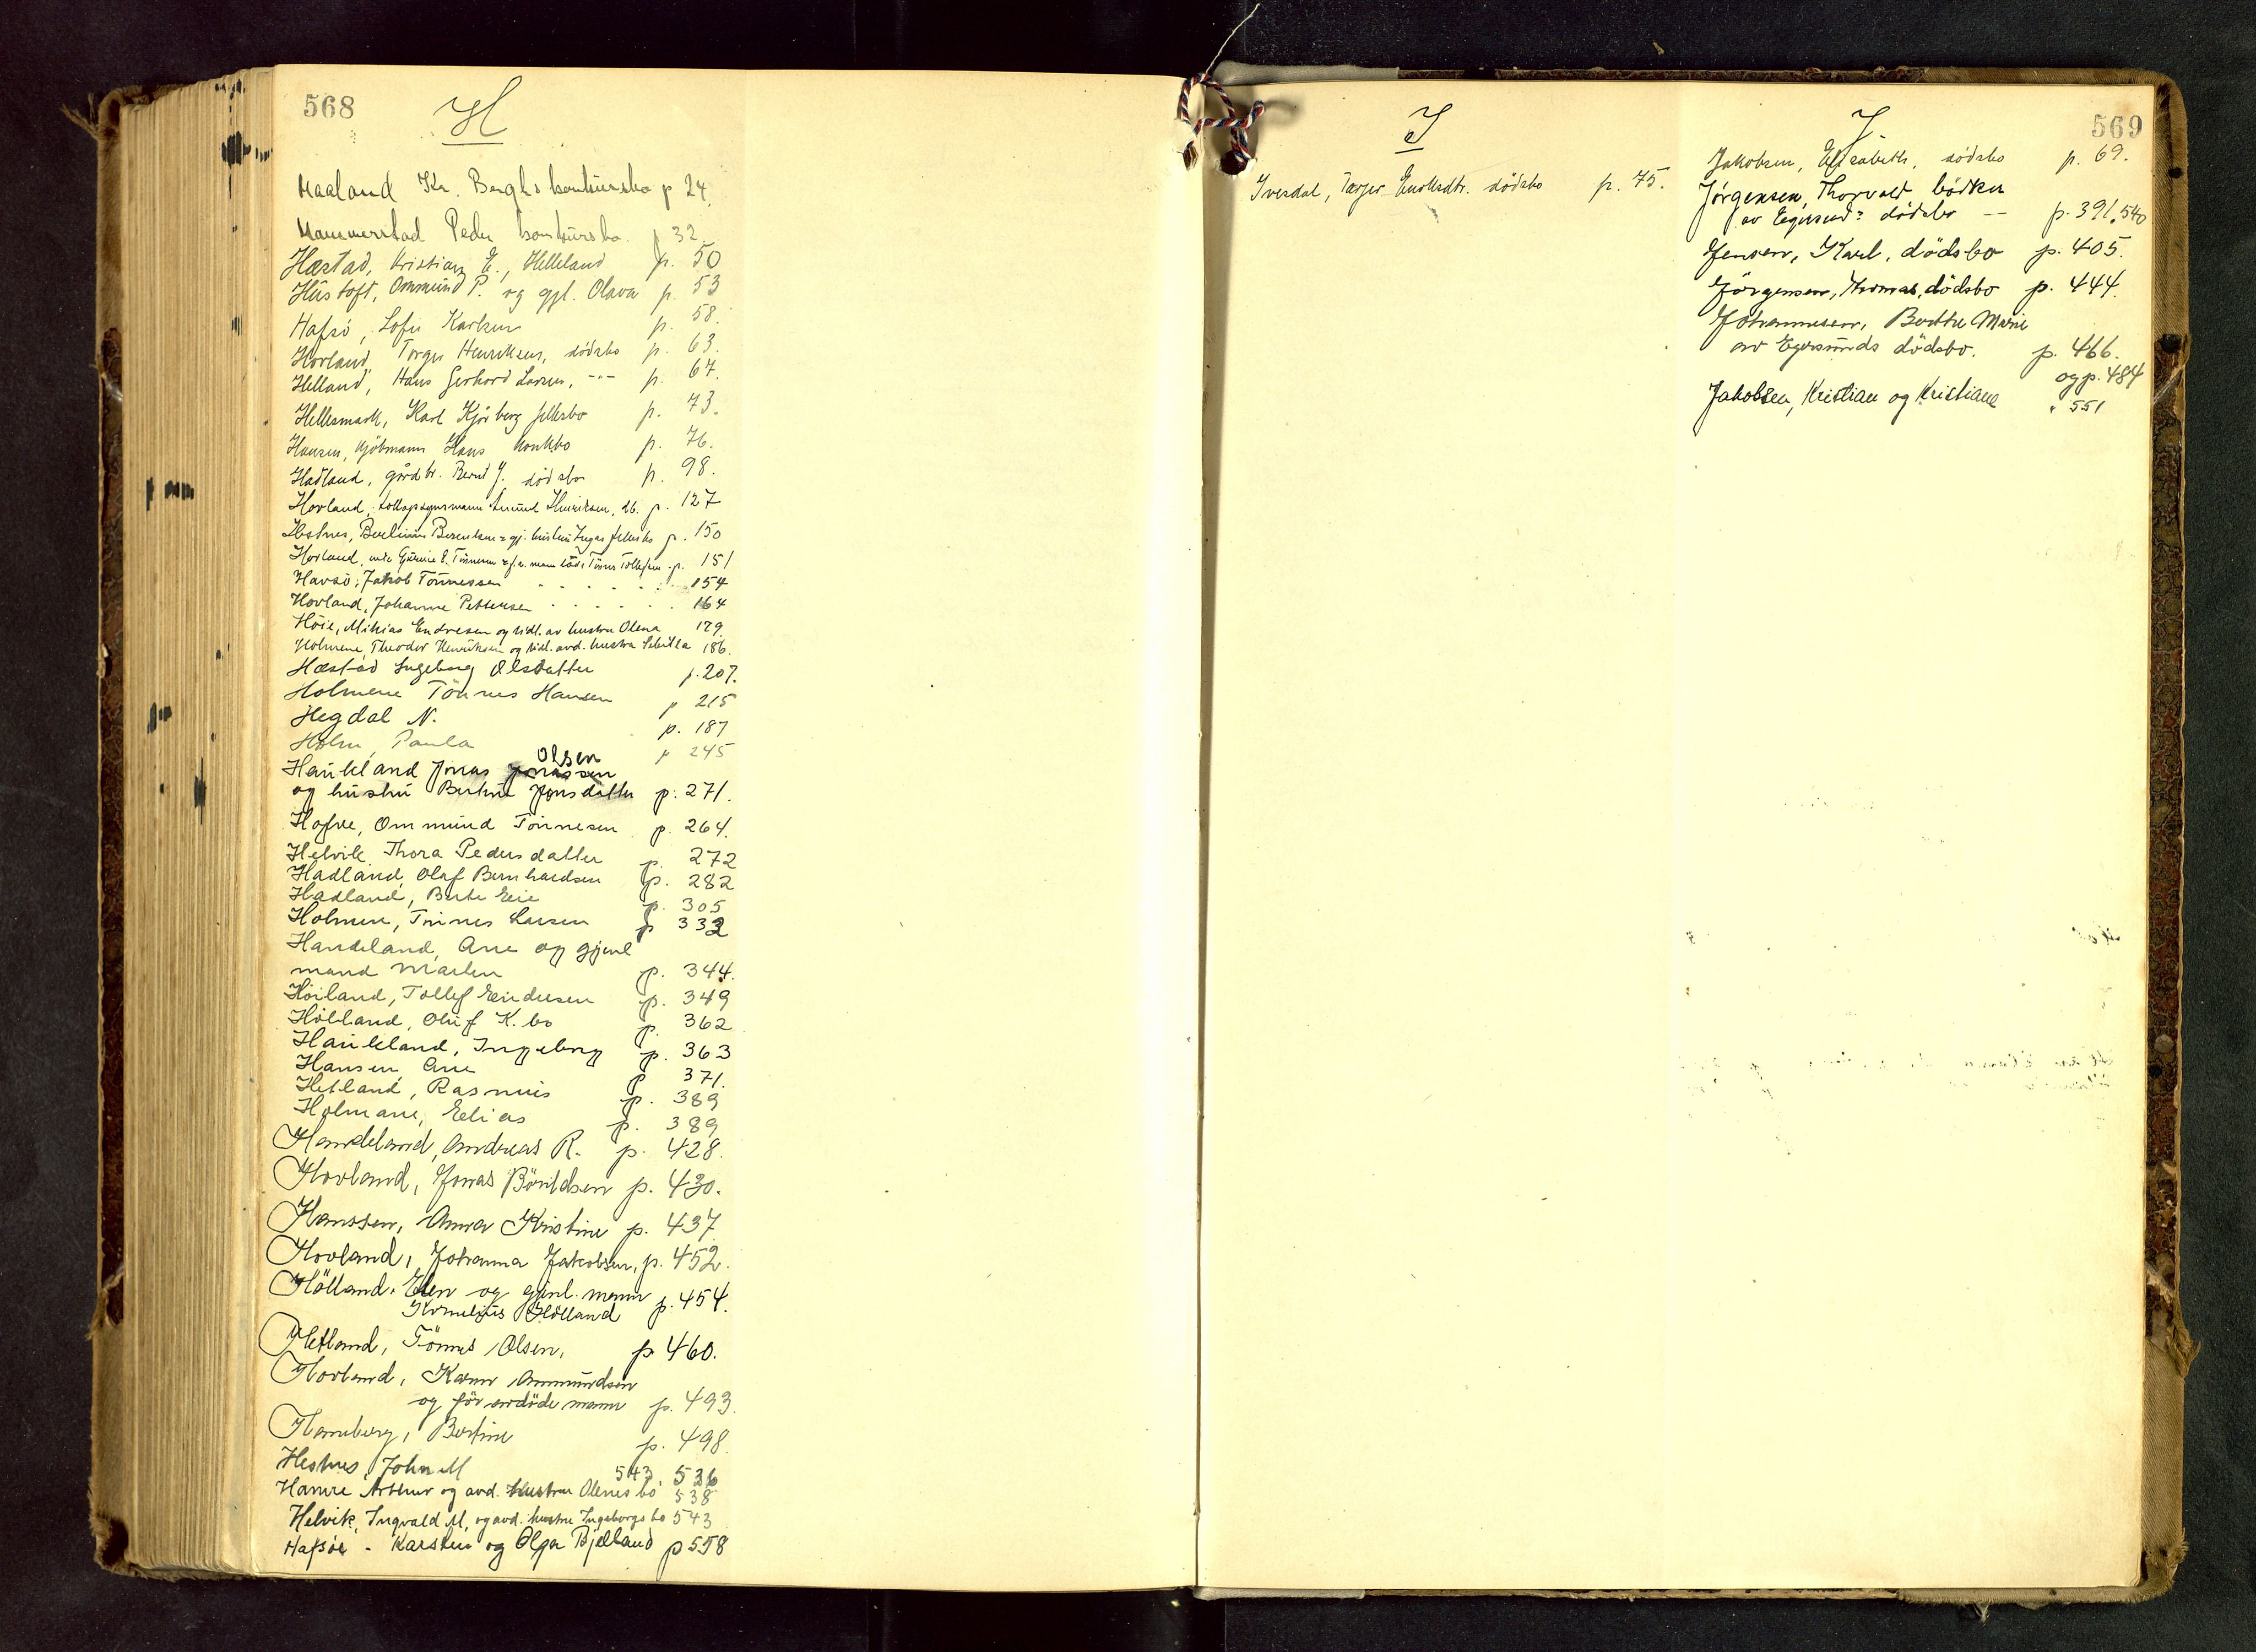 568
H
Haaland Kr. Berghs konkursbo p 24.
Hammerstad Peder konkursbo. p 32.
Hæstad, Kristian E., Helleland p. 50
Hustoft, Ommund P. og gjl. Olava p. 53
Hafsö, Sofie Karlsen p. 58.
Hovland, Torger Henriksen, dödsbo p. 63.
Helland, Hans Gerhard Larsen, -"- p. 67.
Hellesmark, Karl Kjörberg fellesbo p. 73.
Hansen, kjöbmann Hans konkbo p. 76.
Hadland, gårdbr. Bernt J. dödsbo p. 98.
Hovland, Henriksen, db. p. 127
Hestnes, Berentsen p. 150
Hovland, enke Tönnesen Tönnes Tollefsen p. 151
Havsö, Jakob Tönnessen 154
Hovland, Johanne Pettersen 164
Höie, Mikias Endresen og tidl. av hustru Olena 179.
Holmene, Theodor Henriksen og tidl. avd. hustru 186.
Hæstad Ingeborg Olsdatter p. 207.
Holmene Tönnes Hansen p 215
Hegdal N. p. 187
Holm, Paula p 245
Olsen
Haukland Jonas Jonassen
og hustru Bertine Jonsdatter p. 271.
Hofve, Ommund Tönnesen p. 264.
Helvik, Thora Pedersdatter p. 272
Hadland, Olaf Bernhardsen p. 282
Hadland, Berte p. 305
Holmen, Tönnes Larsen p 332
Handeland, Ane og gjenl
mand Martin p. 344.
Höiland, Tollef Endresen p. 349
Hölland, Oluf K. bo p. 362
Haukland, Ingeborg p. 363
Hansen, Ane p 371.
Hetland, Rasmus p. 389
Holmane, Elias p. 389
Handeland, Andreas R. p. 428.
Hovland, Jonas Börildsen p. 430.
Hanssen, Anna Kristine p. 437
Hovland, Johanna Jakobsen, p. 452.
Hölland, Elen og gjenl. mann p. 454.
Kornelius Hölland
Hetland, Tönnes Olsen, p 460.
Hovland, Karen Ommundsen
og för avdöde mann p. 493.
Hamberg, Bertine p. 498.
Hestnes, John M 543 536
Hamre Arthur og avd. hustru Olenes bo 538
Helvik, Ingvald M, og avd. hustru Ingeborgs bo 543
Hafsöe - Karsten og Olga Bjelland p 558
I
Ivesdal, Tarjer Enoksdtr. dödsbo p. 75.
J
569
Jakobsen, Elisabeth, dödsbo p. 69.
Jörgensen, Thorvald bödker
av Egersund's dödsbo -- p. 391, 540
Jensen, Karl, dödsbo p. 405.
Jörgensen, Thomas, dödsbo p. 444.
Johannesen, Berthe Marie
av Egersunds dödsbo. p. 466.
og p. 484
Jakobsen, Kristian og Kristiane " 551